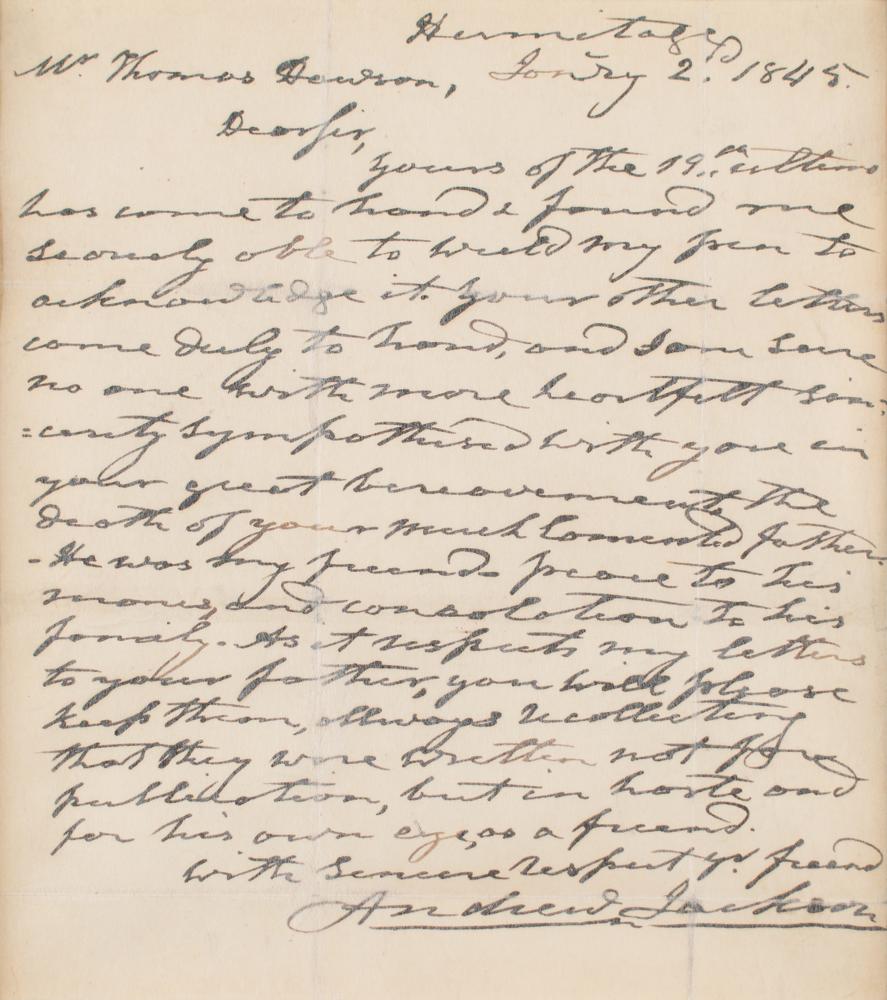 Hermitage
Mr. Thomas Dawson, Jan'ry 2d. 1845.
Dear sir,
yours of the 19th ultimo
has come to hand & found me
scarcely able to wield my pen to
acknowledge it. Your other letters
come duly to hand, and I am sure
no one with more heartfelt sin=
=cerity sympathised with you in
your great bereavement, the
death of your much lamented father.
- He was my friend peace to his
manes, and consolation to his
family. As it respects my letters
to your father, you will please
keep them, allways recollecting
that they were written not for
publication, but in haste and
for his own eye, as a friend.
with sincere respect yr. friend
Andrew Jackson